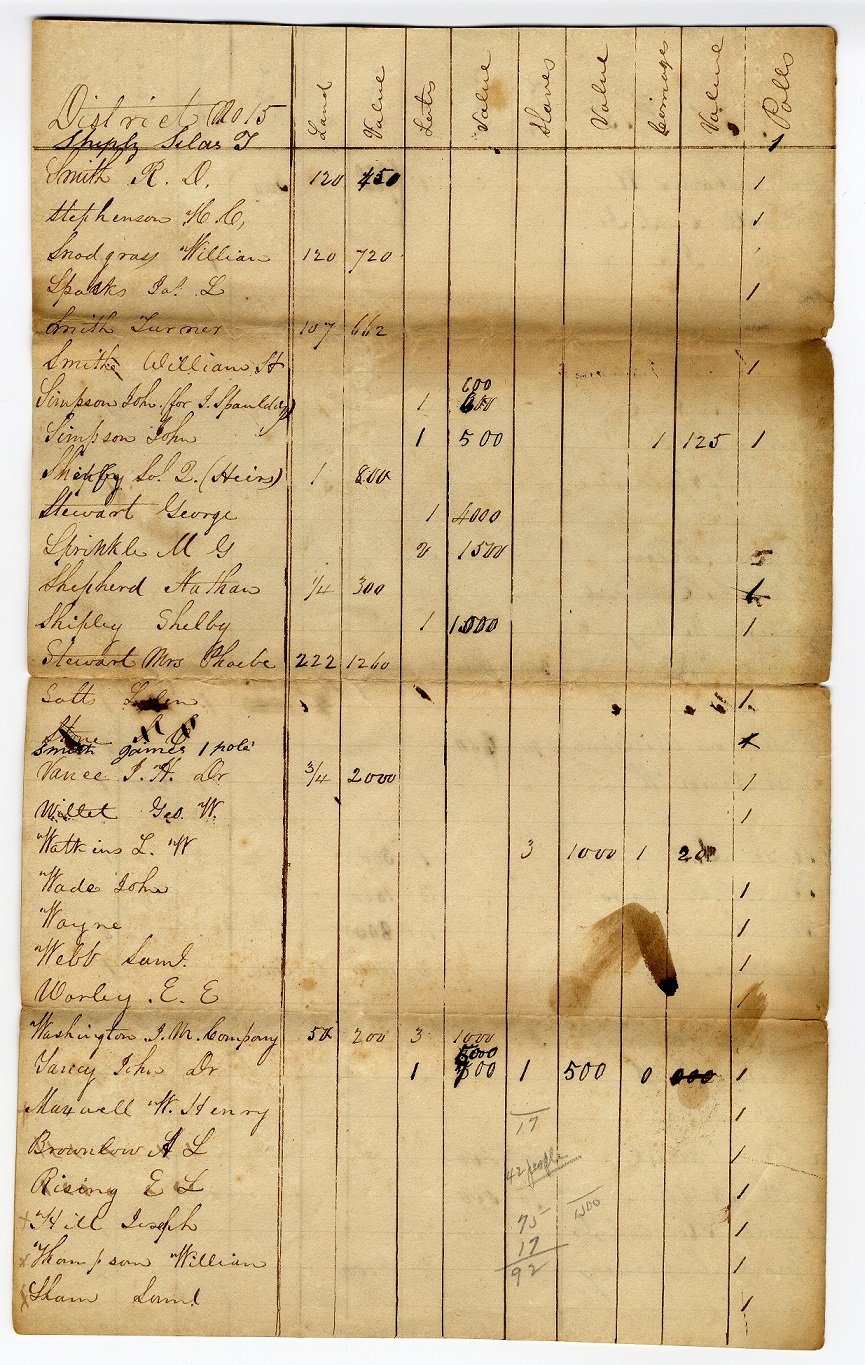 District No 15 Land Value Lots Value Slaves Value Carriages Value Polls
Shiply Silas T 1
Smith R. D. 120 450 1
Stephenson H. C, 1
Snodgrass William 120 720
Sparks Jas. L 1
Smith Turner 107 662
Smith William H 1
600
Simpson John (for J. Spaulding) 1
Simpson John 1 500 1 125 1
Shipley (Heirs) 1 800
Stewart George 1 4000
Sprinkle M G 2 1500
Shepherd Nathan 1/4 300 1
Shipley Shelby 1 1000 1
Stewart Mrs Phoebe 222 1260
1
Stone
Smith James 1 pole
Vance J. H. Dr 3/4 2000 1
Willet Geo. W. 1
Watkins L. W 3 1000 1 20
Wade John 1
Wayne 1
Webb Saml. 1
Worley. E. E 1
Washington J. M. Company 50 200 3 1000
Yancy John Dr 1 1 500 0 000 1
Maxwell W. Henry 1
17
Brownlow A L 1
42 people
Rising E L 1
Hill Joseph 75 1
17
Thompson William 1
92
Sham Saml 1